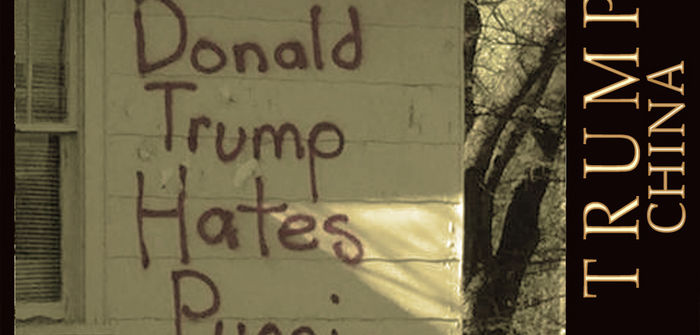 Donald
Trump
Hates
TRUMP
CHINA